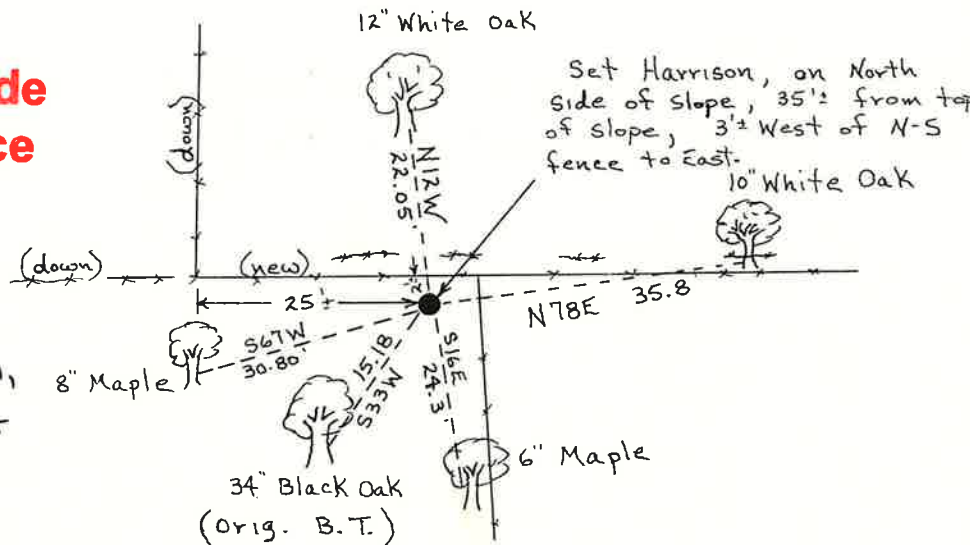 12" White Oak
de
ce
Set Harrison, on North
side of slope, 35'± from top
of slope, 3'± West of N-S
fence to East.
10" White Oak
(down)
N12W
22.05'
(down)
(new)
2'±
25'±
N78E 35.8
S67W
30.80'
8" Maple
15.18
S33W
S16E
24.3'
6" Maple
34" Black Oak
(Orig. B.T.)